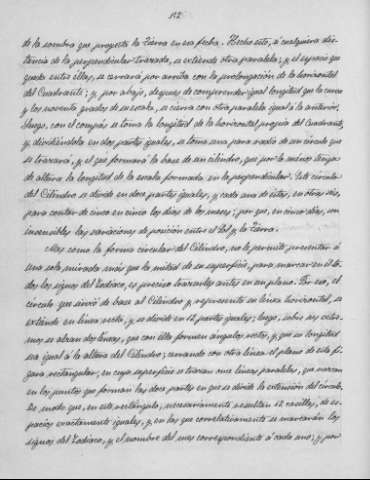 112
de la sombra que proyecta la Tierra en esa fecha. Hecho esto, á cualquiera dis-
tancia de la perpendicular trazada, se extiende otra paralela; y el espacio que
queda entre ellas, se cerrará por arriba con la prolongación de la horizontal
del Cuadrante; y por abajo, despues de comprender igual longitud que la cruz
y los noventa grados de su escala, se cierra con otra paralela igual á la anterior.
Luego, con el compás se toma la longitud de la horizontal propia del Cuadrante,
y dividiéndola en dos partes iguales, se toma una para radio de un círculo que
se trazará, y el que formará la base de un cilindro, que por lo mismo tenga
de altura la longitud de la escala formada en la perpendicular. Este círculo
del Cilindro se divide en doce partes iguales, y cada una de éstas, en otras seis,
para contar de cinco en cinco los dias de los meses; por que, en cinco dias, son
insensibles las variaciones de posición entre el Sol y la Tierra.
Mas como la forma circular del Cilindro, no le permite presentar á
una sola mirada más que la mitad de su superficie, para marcar en él to-
dos los signos del Zodiaco, es preciso trazarles antes en un plano. Por eso, el
círculo que sirvió de base al Cilindro y represente su línea horizontal, se
extiende en línea recta, y se divide en 12 partes iguales; luego, sobre sus extre-
mos se alzan dos líneas, que con ella formen ángulos rectos, y que su longitud
sea igual á la altura del Cilindro; cerrando con otra línea el plano de esta fi-
gura rectangular; en cuya superficie se trazan once líneas paralelas, que nazcan
en los puntos que forman las doce partes en que se divide la extensión del círculo.
De modo que, en este rectángulo, necesariamente resultan 12 casillas, de es-
pacios exactamente iguales, y en las que correlativamente se marcarán los
signos del Zodiaco, y el nombre del mes correspondiente á cada uno; y, por